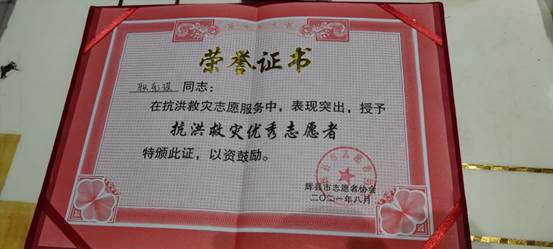 荣誉证书
同志：
在抗洪救灾志愿服务中，表现突出，授予
抗洪救灾优秀志愿者
特颁此证，以资鼓励。
辉县市志愿者协会
二〇二一年八月